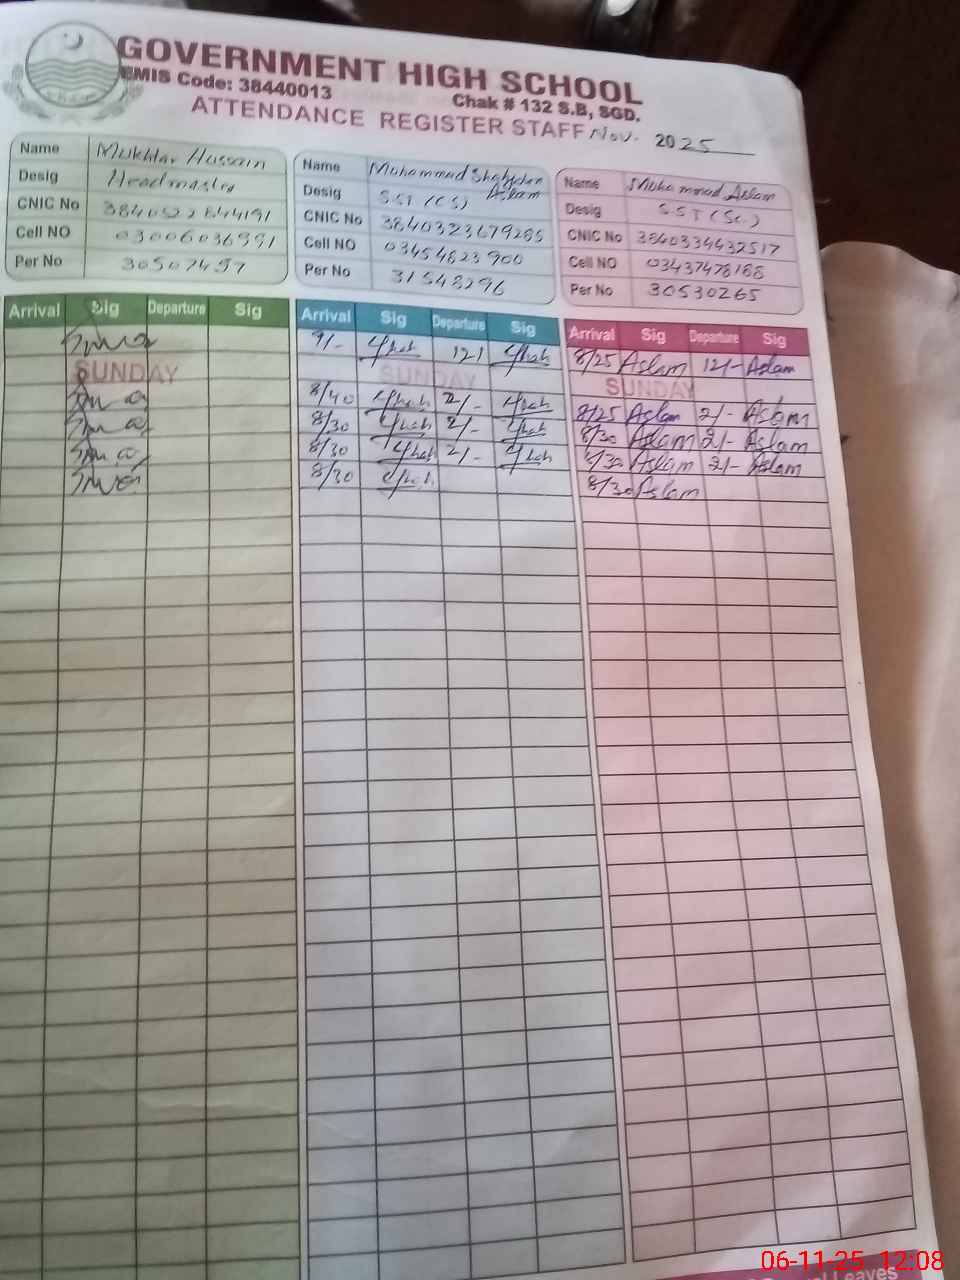 GOVERNMENT HIGH SCHOOL
EMIS Code: 38440013
Chak # 132 S.B, SGD.
ATTENDANCE REGISTER STAFF Nov. 2025
Name Mukhtar Hussain
Desig Headmaster
CNIC No 3840522844191
Cell NO 03006036991
Per No 30507457
Name Muhammad Aslam
Desig SST (CS)
CNIC No 3840323679285
Cell NO 03454823900
Per No 31548296
Name Muhammad Aslam
Desig S.ST (Sc.)
CNIC No 3840334432517
Cell NO 03437478188
Per No 30530265
Arrival Sig Departure Sig
SUNDAY
Arrival Sig Departure Sig
9/- 12/
SUNDAY
8/40 2/-
8/30 2/-
8/30 2/-
8/30
Arrival Sig Departure Sig
8/25 Aslam 12/- Aslam
SUNDAY
8/25 Aslam 2/- Aslam
8/30 Aslam 2/- Aslam
8/30 Aslam 2/- Aslam
8/30 Aslam
Leaves
06-11-25 12:08